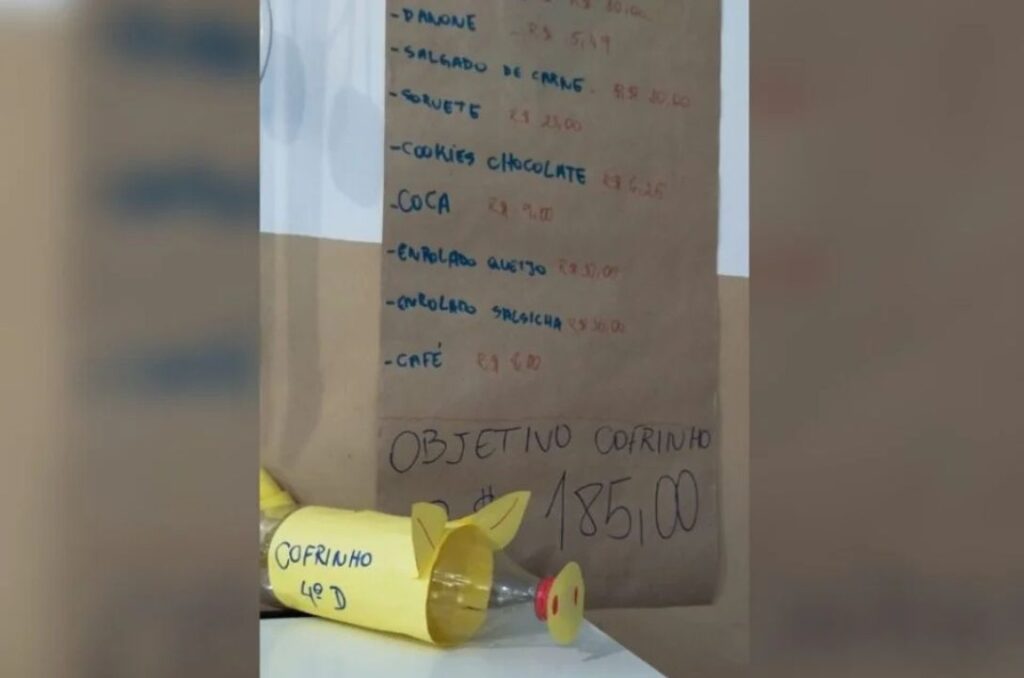 -DANONE - R$ 5,49
-SALGADO DE CARNE. R$ 30,00
-SORVETE R$ 23,00
-COOKIES CHOCOLATE R$ 6,25
-COCA R$ 9,00
-ENROLADO QUEIJO R$
-ENROLADO SALSICHA R$ 30,00
-CAFÉ R$
OBJETIVO COFRINHO
185,00
COFRINHO
4º D